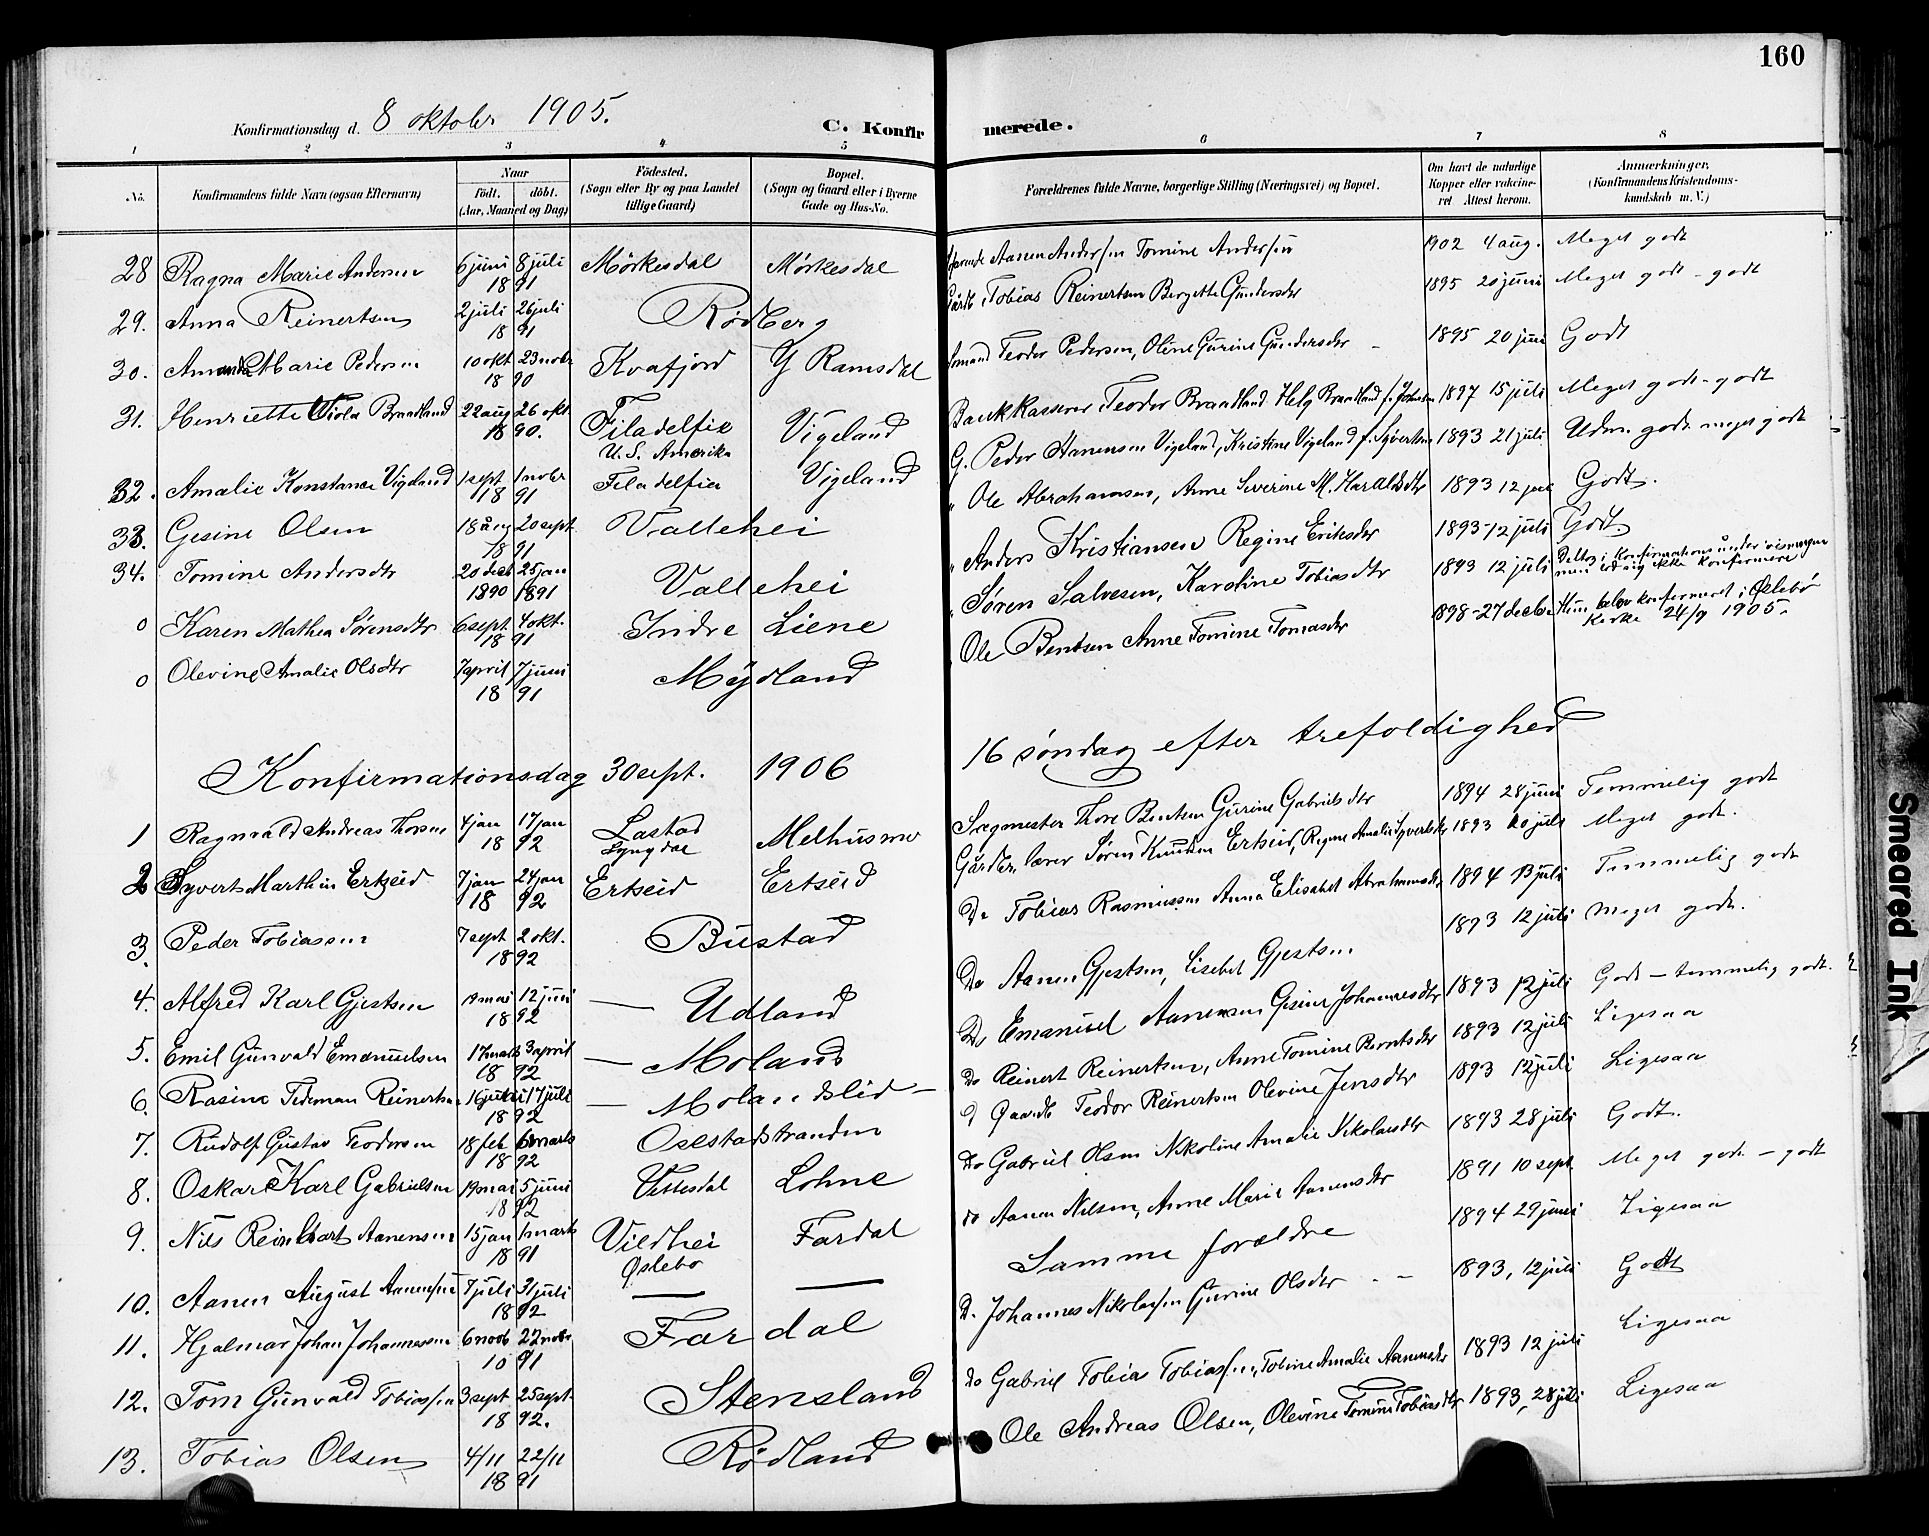 160
Konfirmationsdag d. 8 oktober 1905.
C. Konfirmerede.
1 2 3 4 5 6 7 8
No.
Konfirmandens fulde Navn (ogsaa Efternavn)
Naar
født. døbt.
(Aar, Maaned og Dag)
Födested.
(Sogn eller By og paa Landet
tillige Gaard)
Bopæl.
(Sogn og Gaard eller i Byerne
Gade og Hus-No.
Forældrenes fulde Navne, borgerlige Stilling (Næringsvei) og Bopæl.
Om havt de naturlige
Kopper eller vakcine-
ret Attest herom.
Anmærkninger,
(Konfirmandens Kristendoms-
kundskab m. V.)
28 Ragna Marie Andersen 6 juni 8 juli 1891 Mørkesdal Mørkesdal Aanen Andersen Tomine Andersen 1902 4 aug. Meget godt
29. Anna Reinertsen 2 juli 26 juli 1891 Rødberg Tobias Reinertsen Bergette Gundersdtr 1895 20 juni Meget godt - godt
30. Amanda Marie Pedersen 10 okt 23 novbr 1890 Kvafjord Y Ramsdal Teodor Pedersen, Oline Gurine Gundersdtr 1895 20 juni Godt
31. Henriette Viola Braadland 22 aug 26 okt. 1890. Filadelfie U.S. Amerika Vigeland Bankkasserer Teodor Braadland Helg Braadland f. 1897 15 juli Meget godt - godt
32. Amalie Konstance Vigeland 1 sept 1 novbr 1891 Filadelfia Vigeland G. Peder Aanensen Vigeland, Kristine Vigeland f. Syvertsen 1893 21 juli Udm. godt meget godt
33. Gesine Olsen 18 aug 20 sept 1891 Vallehei " Ole Abrahamsen, Anne Severine M. Haraldsdtr 1893 12 juli Godt.
34. Tomine Andersdtr 20 decb 1890 25 jan 1891 Vallehei " Anders Kristiansen Regine Eriksdtr 1893 - 12 juli Godt.
0 Karen Mathea Sørensdtr 6 sept 4 okt. 1891 Indre Liene " Søren Salvesen, Karoline Tobiasdtr 1893 12 juli Deltog i konfirmationsundervisningen men ikke konfirmere
0 Olevine Amalie Olsdtr 7 april 7 juni 1891 Mydland Ole Bentsen Anne Tomine Tomasdtr 1898 - 27 decbr Hun blev konfirmeret i Øslebø Kirke 24/9 1905.
Konfirmationsdag 30 sept. 1906 16 søndag efter trefoldighed
1 Ragnvald Andreas Thorsen 4 jan 17 jan 1892 Lastad Lyngdal Melhusmo Sagmester Thore Bentsen Gurine Gabrielsdtr 1894 28 juni Temmelig godt
2 Syvert Marthin Ertzeid 7 jan 24 jan 1892 Ertseid Ertseid Gårdbr. lærer Søren Knudsen Ertseid, Regine Amalie Syvertsdtr 1893 20 juli Meget godt.
3. Peder Tobiassen 7 sept 2 okt. 1892 Bustad Do Tobias Rasmussen Anna Elisabet Abrahamsdtr 1894 13 juli Temmelig godt
4. Alfred Karl Gjestsen 19 mai 12 juni 1892 — Udland Do Aanen Gjestsen, Lisebet Gjestsen 1893 12 juli Meget godt.
5. Emil Gunvald Emanuelsen 17 marts 3 april 1892 — Moland Do Emanuel Aanensen Gesine Johannesdtr 1893 12 juli Godt - temmelig godt.
6. Rasine Tideman Reinertsen 16 juni 17 juli 1892 — Molandslid — Do Reinert Reinertsen, Anne Tomine Berntsdtr 1893 12 juli Ligesaa
7. Rudolf Gustav Teodorsen 18 feb 6 marts 1892 Osestadstranden Teodor Reinertsen Olevine Jensdtr 1893 12 juli Ligesaa
8. Oskar Karl Gabrielsen 19 mai 5 juni 1892 Vettesdal Lohne Do Gabriel Olsen Nikoline Amalie Nikolaisdtr 1893 28 juli Godt.
9. Nils Reinhart Aanensen 15 jan 1 marts 1891 Viedhei Øslebø Fardal Do Aanen Nilsen, Anne Marie Aanensdtr 1891 10 sept. Meget godt - godt
10. Aanen August Aanensen 7 juli 31 juli 1892 — — Samme forældre 1894 29 juni Ligesaa
11. Hjalmar Johan Johannessen 6 novb 22 novbr 1891 Fardal D. Johannes Nikolaisen Gurine Olsdtr 1893, 12 juli Godt
12. Tom Gunvald Tobiassen 3 sept 25 sept. 1892. Stensland Do Gabriel Tobias Tobiassen, Tobine Amalie Aanensdtr 1893 12 juli Ligesaa
13. Tobias Olsen 4/11 22/11 1891 Rødland Ole Andreas Olsen, Olevine Tomine Tobiasdtr 1893, 28 juli Ligesaa
Smeared Ink